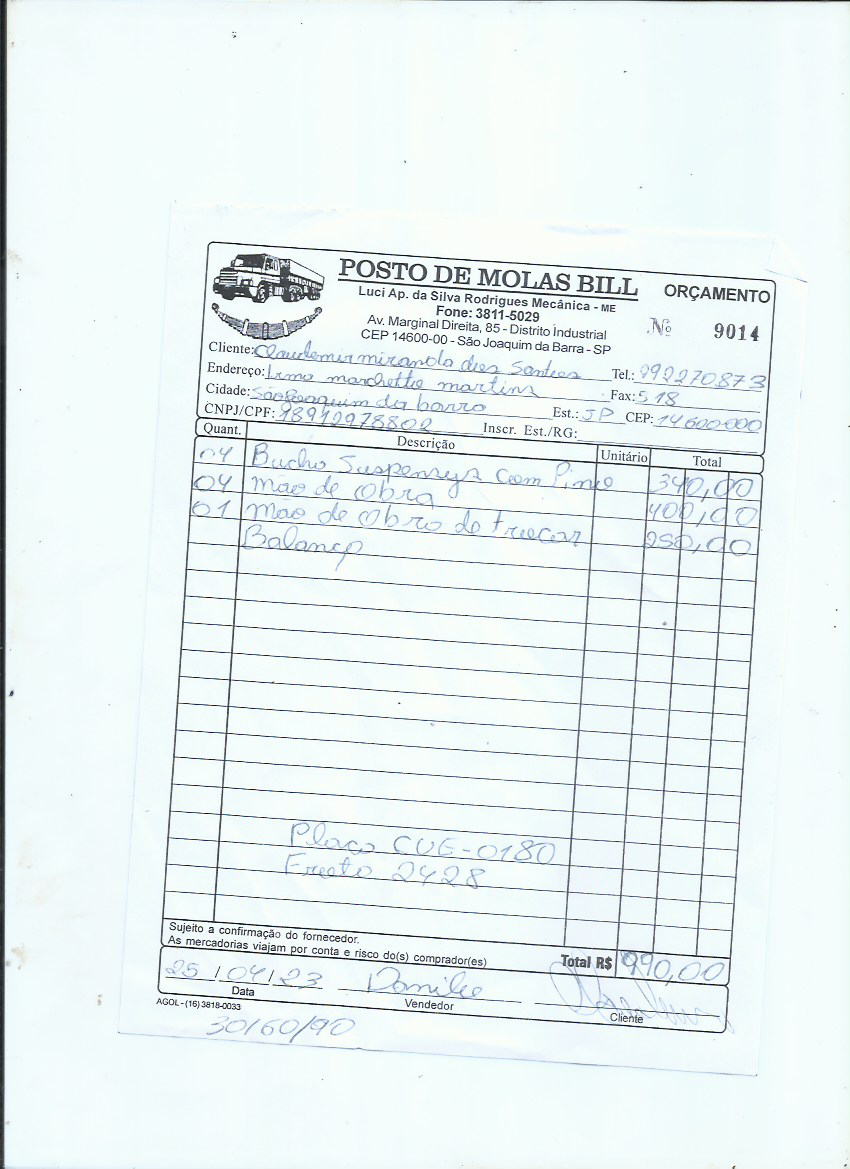 POSTO DE MOLAS BILL
ORÇAMENTO
Luci Ap. da Silva Rodrigues Mecânica - ME
Fone: 3811-5029
Av. Marginal Direita, 85 - Distrito Industrial
CEP 14600-00 - São Joaquim da Barra - SP
Nº 9014
Cliente: Claudemir miranda dos Santos Tel.: 992270873
Endereço: Irmo marchette martins Fax: 518
Cidade: São Joaquim da barra Est.: SP CEP: 14600000
CNPJ/CPF: 18912978802 Inscr. Est./RG:
Quant. Descrição Unitário Total
04 Bucho Suspensys com Pino 340,00
04 mão de Obra 400,00
01 mão de Obro de trocar 250,00
Balanço
Placa CUE-0180
Frota 2428
Sujeito a confirmação do fornecedor.
As mercadorias viajam por conta e risco do(s) comprador(es)
Total R$ 990,00
25 / 04 / 23 Danilo
Data Vendedor Cliente
AGOL - (16) 3818-0033
30/60/90